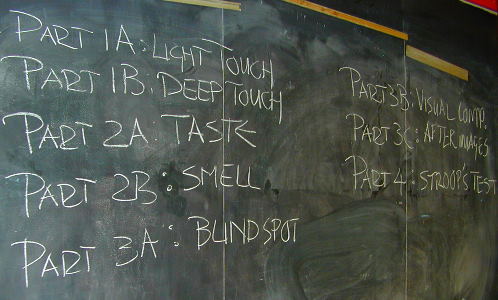 PART 1A: LIGHT TOUCH
PART 1B: DEEP TOUCH
PART 2A: TASTE
PART 2B: SMELL
PART 3A: BLINDSPOT
PART 3B: VISUAL COMP.
PART 3C: AFTER IMAGES
PART 4: STROOP'S TEST